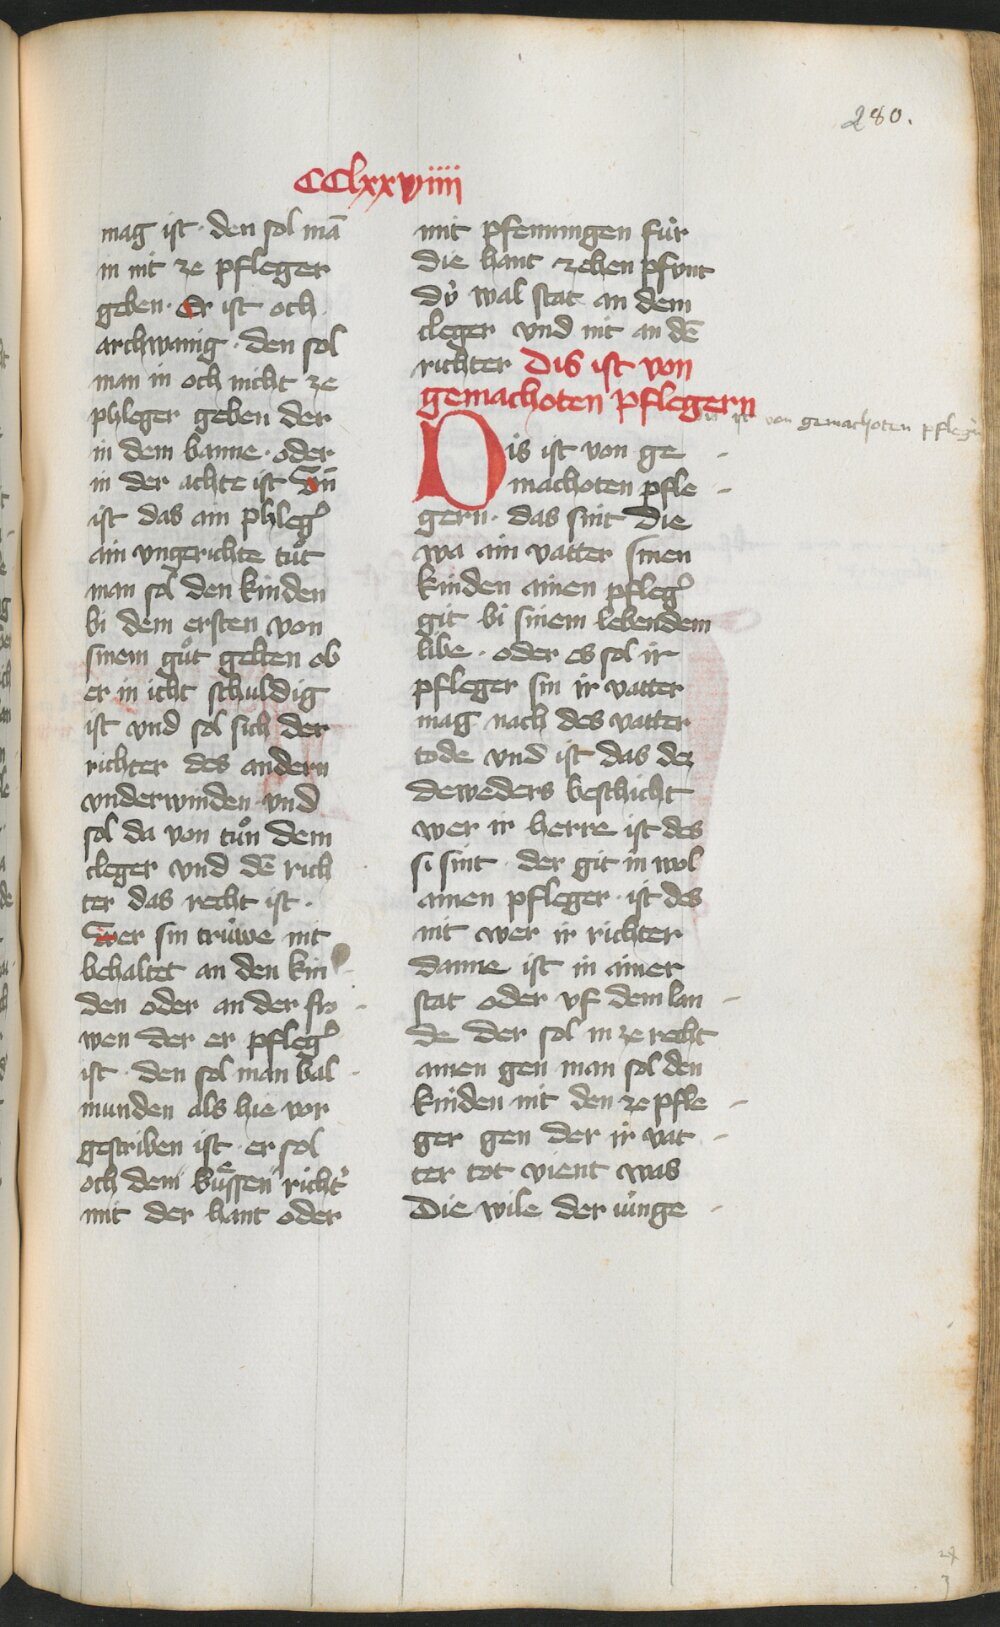 280.
CClxxviiii
mag ist · den sol mā
in nit ze pfleger
geben · Er ist och
archwanig · den sol
man in och nicht ze
phleger geben der
in dem banne · oder
in der achte ist Vn̄
ist das ain phleg̓
ain vngerichte tuͤt
man sol den kinden
bi dem ersten von
sinem guͦt gelten ob
er in icht schuldig
ist vnd sol sich der
richter des andern
vnderwinden vnd
sol da von tuͦn dem
cleger vnd dē rich
ter das recht ist ·
Wer sin trüwe nit
behaltet an den kin
den oder an der fro
wen der er pfleg̓
ist · den sol man bal
munden als hie vor
gescriben ist · er sol
och dem buͤssen richt̓
mit der hant oder
mit pfenningen für
die hant zehen pfunt
dÿ wal stat an dem
cleger vnd nit an dē
richter Dis ist von
gemachoten pflegern
ist von gemachoten pfleg̓n
Dis ist von ge
machoten pfle
gern · das sint die
wa ain vatter sinen
kinden ainen pfleg̓
git bi sinem lebendem
libe · oder es sol ir
pfleger sin ir vatter
mag nach des vatter
tode vnd ist das der
deweders beschicht
wer ir herre ist des
si sint · der git in wol
ainen pfleger · ist des
nit wer ir richter
danne ist in ainer
stat oder vf dem lan
de der sol in ze recht
ainen gen man sol den
kinden nit den ze pfle
ger gen der ir vat
ter tot vient was
Die wile der iunge